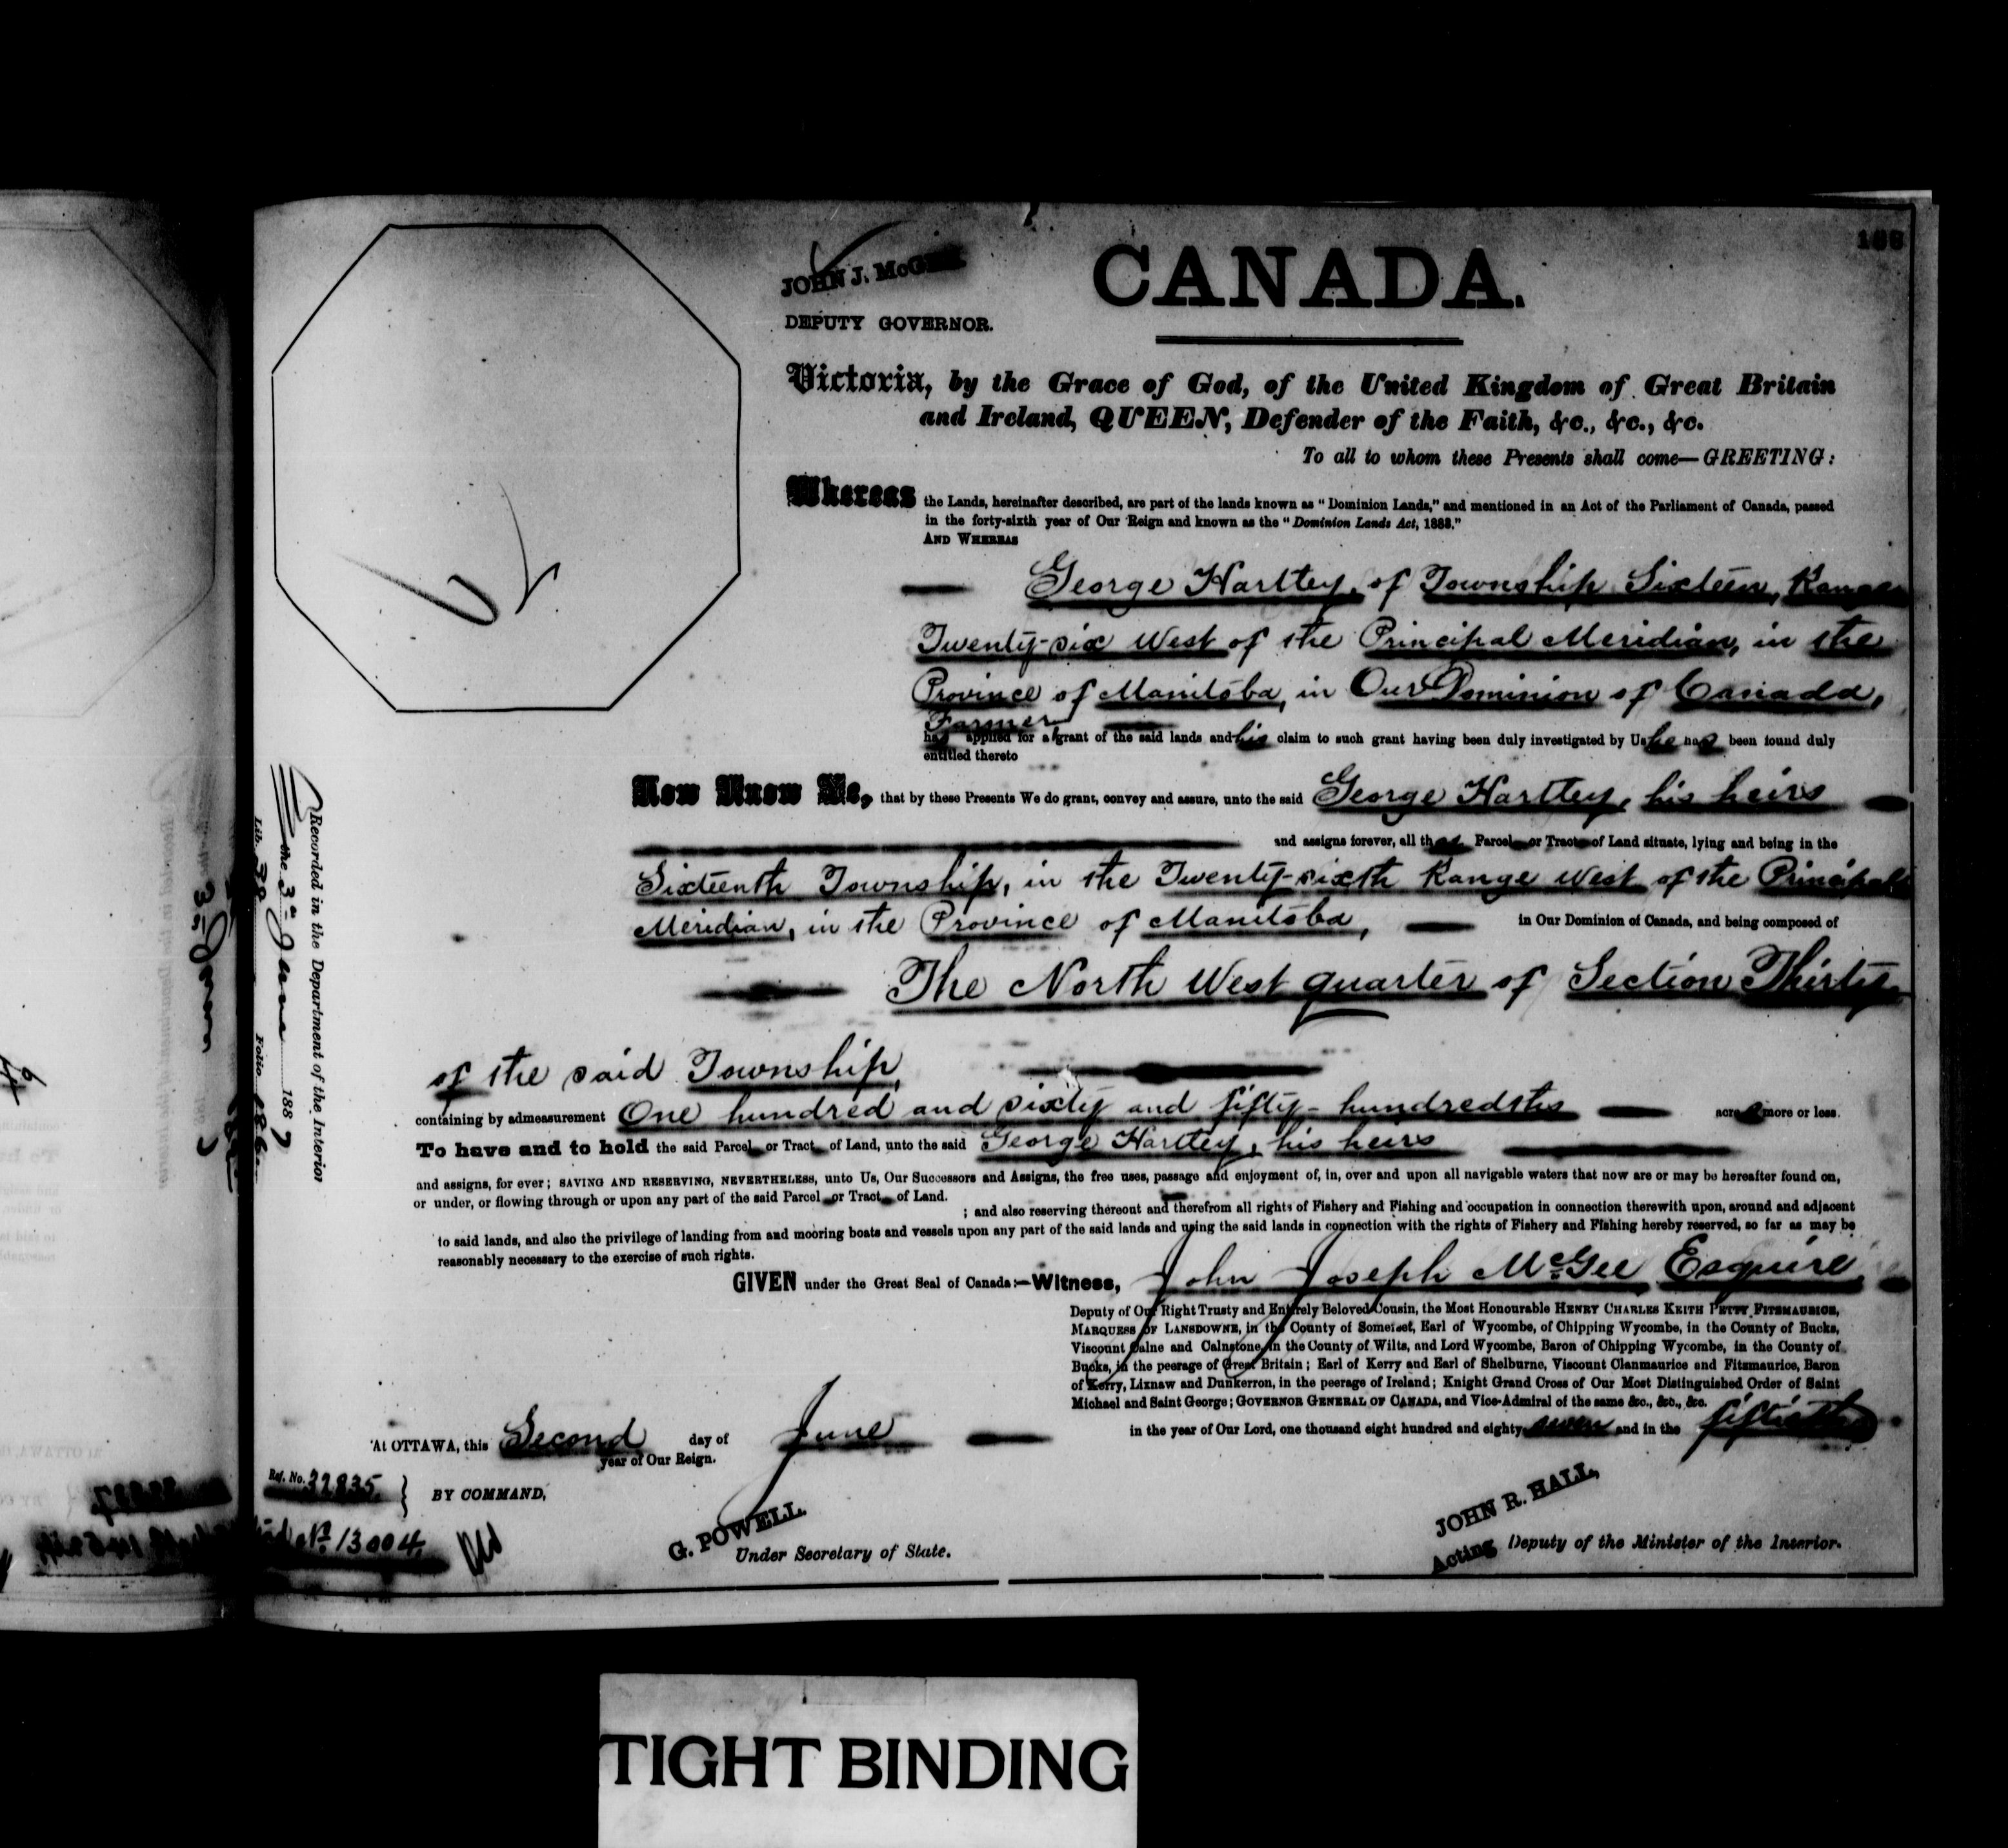 JOHN J. McGEE
DEPUTY GOVERNOR.
CANADA.
Victoria, by the Grace of God, of the United Kingdom of Great Britain
and Ireland, QUEEN, Defender of the Faith, &c., &c., &c.
To all to whom these Presents shall come—GREETING:
Whereas the Lands, hereinafter described, are part of the lands known as "Dominion Lands," and mentioned in an Act of the Parliament of Canada, passed
in the forty-sixth year of Our Reign and known as the "Dominion Lands Act, 1883."
AND WHEREAS
George Hartley, of Township Sixteen, Range
Twenty-six West of the Principal Meridian, in the
Province of Manitoba, in Our Dominion of Canada,
Farmer
has applied for a grant of the said lands and his claim to such grant having been duly investigated by Us he has been found duly
entitled thereto
Now Know Ye, that by these Presents We do grant, convey and assure, unto the said George Hartley, his heirs
and assigns forever, all that Parcel or Tract of Land situate, lying and being in the
Sixteenth Township, in the Twenty-sixth Range West of the Principal
Meridian, in the Province of Manitoba, in Our Dominion of Canada, and being composed of
The North West quarter of Section Thirty
of the said Township,
containing by admeasurement One hundred and sixty and fifty-hundredths acres more or less.
To have and to hold the said Parcel or Tract of Land, unto the said George Hartley, his heirs
and assigns, for ever; SAVING AND RESERVING, NEVERTHELESS, unto Us, Our Successors and Assigns, the free uses, passage and enjoyment of, in, over and upon all navigable waters that now are or may be hereafter found on,
or under, or flowing through or upon any part of the said Parcel or Tract of Land.
; and also reserving thereout and therefrom all rights of Fishery and Fishing and occupation in connection therewith upon, around and adjacent
to said lands, and also the privilege of landing from and mooring boats and vessels upon any part of the said lands and using the said lands in connection with the rights of Fishery and Fishing hereby reserved, so far as may be
reasonably necessary to the exercise of such rights.
GIVEN under the Great Seal of Canada:—Witness, John Joseph McGee Esquire
Deputy of Our Right Trusty and Entirely Beloved Cousin, the Most Honourable HENRY CHARLES KEITH PETTY FITZMAURICE,
MARQUESS OF LANSDOWNE, in the County of Somerset, Earl of Wycombe, of Chipping Wycombe, in the County of Bucks,
Viscount Calne and Calnstone, in the County of Wilts, and Lord Wycombe, Baron of Chipping Wycombe, in the County of
Bucks, in the peerage of Great Britain; Earl of Kerry and Earl of Shelburne, Viscount Clanmaurice and Fitzmaurice, Baron
of Kerry, Lixnaw and Dunkerron, in the peerage of Ireland; Knight Grand Cross of Our Most Distinguished Order of Saint
Michael and Saint George; GOVERNOR GENERAL OF CANADA, and Vice-Admiral of the same &c., &c., &c.
At OTTAWA, this Second day of June in the year of Our Lord, one thousand eight hundred and eighty seven and in the fiftieth
year of Our Reign.
Ref. No. 37835. } BY COMMAND,
No 13004.
G. POWELL.
Under Secretary of State.
JOHN R. HALL,
Acting Deputy of the Minister of the Interior.
Recorded in the Department of the Interior
the 3d June 1887
Lib. Folio 186
TIGHT BINDING